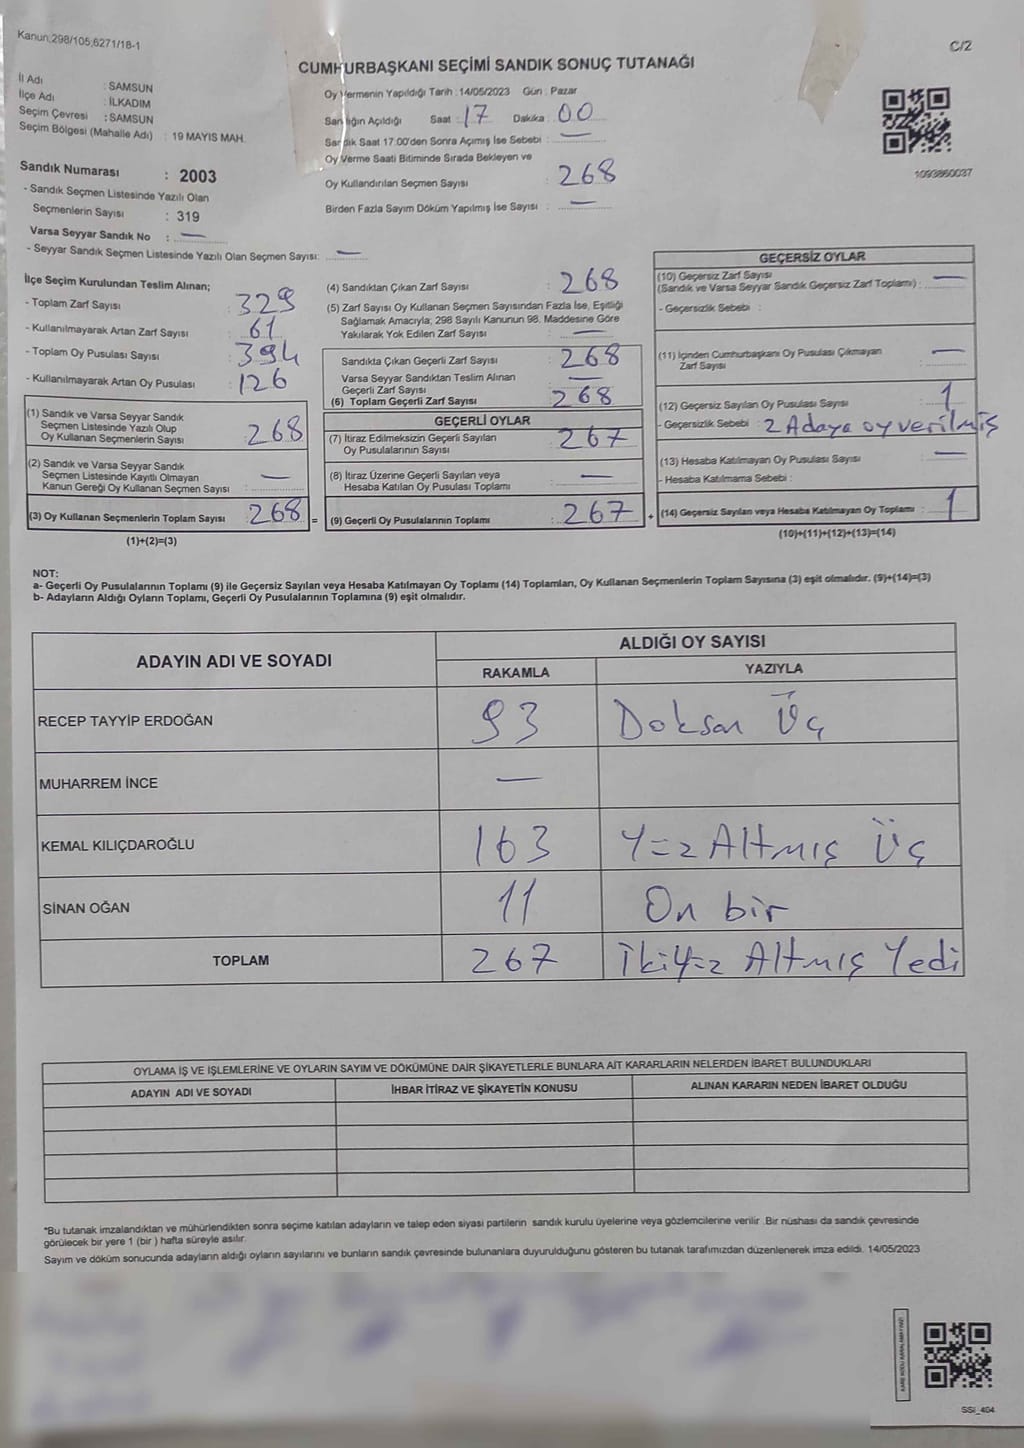 Kanun;298/105;6271/18-1
C/2
CUMHURBAŞKANI SEÇİMİ SANDIK SONUÇ TUTANAĞI
İl Adı : SAMSUN
İlçe Adı : İLKADIM
Seçim Çevresi : SAMSUN
Seçim Bölgesi (Mahalle Adı) : 19 MAYIS MAH.
Sandık Numarası : 2003
- Sandık Seçmen Listesinde Yazılı Olan
Seçmenlerin Sayısı : 319
Varsa Seyyar Sandık No : —
- Seyyar Sandık Seçmen Listesinde Yazılı Olan Seçmen Sayısı: —
Oy Vermenin Yapıldığı Tarih : 14/05/2023 Gün : Pazar
Sandığın Açıldığı Saat : 17 Dakika : 00
Sandık Saat 17:00'den Sonra Açımış İse Sebebi : —
Oy Verme Saati Bitiminde Sırada Bekleyen ve
Oy Kullandırılan Seçmen Sayısı : 268
Birden Fazla Sayım Döküm Yapılmış İse Sayısı : —
1093860037
İlçe Seçim Kurulundan Teslim Alınan;
- Toplam Zarf Sayısı : 329
- Kullanılmayarak Artan Zarf Sayısı : 61
- Toplam Oy Pusulası Sayısı : 394
- Kullanılmayarak Artan Oy Pusulası : 126
(1) Sandık ve Varsa Seyyar Sandık
Seçmen Listesinde Yazılı Olup
Oy Kullanan Seçmenlerin Sayısı : 268
(2) Sandık ve Varsa Seyyar Sandık
Seçmen Listesinde Kayıtlı Olmayan
Kanun Gereği Oy Kullanan Seçmen Sayısı : —
(3) Oy Kullanan Seçmenlerin Toplam Sayısı : 268 =
(1)+(2)=(3)
(4) Sandıktan Çıkan Zarf Sayısı : 268
(5) Zarf Sayısı Oy Kullanan Seçmen Sayısından Fazla İse, Eşitliği
Sağlamak Amacıyla; 298 Sayılı Kanunun 98. Maddesine Göre
Yakılarak Yok Edilen Zarf Sayısı : —
Sandıkta Çıkan Geçerli Zarf Sayısı : 268
Varsa Seyyar Sandıktan Teslim Alınan
Geçerli Zarf Sayısı : —
(6) Toplam Geçerli Zarf Sayısı : 268
GEÇERLİ OYLAR
(7) İtiraz Edilmeksizin Geçerli Sayılan
Oy Pusulalarının Sayısı : 267
(8) İtiraz Üzerine Geçerli Sayılan veya
Hesaba Katılan Oy Pusulası Toplamı : —
(9) Geçerli Oy Pusulalarının Toplamı : 267 +
GEÇERSİZ OYLAR
(10) Geçersiz Zarf Sayısı
(Sandık ve Varsa Seyyar Sandık Geçersiz Zarf Toplamı) : —
- Geçersizlik Sebebi :
(11) İçinden Cumhurbaşkanı Oy Pusulası Çıkmayan
Zarf Sayısı : —
(12) Geçersiz Sayılan Oy Pusulası Sayısı : 1
- Geçersizlik Sebebi : 2 Adaya oy verilmiş
(13) Hesaba Katılmayan Oy Pusulası Sayısı : —
- Hesaba Katılmama Sebebi :
(14) Geçersiz Sayılan veya Hesaba Katılmayan Oy Toplamı : 1
(10)+(11)+(12)+(13)=(14)
NOT:
a- Geçerli Oy Pusulalarının Toplamı (9) ile Geçersiz Sayılan veya Hesaba Katılmayan Oy Toplamı (14) Toplamları, Oy Kullanan Seçmenlerin Toplam Sayısına (3) eşit olmalıdır. (9)+(14)=(3)
b- Adayların Aldığı Oyların Toplamı, Geçerli Oy Pusulalarının Toplamına (9) eşit olmalıdır.
ADAYIN ADI VE SOYADI
ALDIĞI OY SAYISI
RAKAMLA YAZIYLA
RECEP TAYYİP ERDOĞAN 93 Doksan Üç
MUHARREM İNCE —
KEMAL KILIÇDAROĞLU 163 Yüz Altmış Üç
SİNAN OĞAN 11 On bir
TOPLAM 267 İkiYüz Altmış Yedi
OYLAMA İŞ VE İŞLEMLERİNE VE OYLARIN SAYIM VE DÖKÜMÜNE DAİR ŞİKAYETLERLE BUNLARA AİT KARARLARIN NELERDEN İBARET BULUNDUKLARI
ADAYIN ADI VE SOYADI İHBAR İTİRAZ VE ŞİKAYETİN KONUSU ALINAN KARARIN NEDEN İBARET OLDUĞU
*Bu tutanak imzalandıktan ve mühürlendikten sonra seçime katılan adayların ve talep eden siyasi partilerin sandık kurulu üyelerine veya gözlemcilerine verilir .Bir nüshası da sandık çevresinde
görülecek bir yere 1 (bir ) hafta süreyle asılır.
Sayım ve döküm sonucunda adayların aldığı oyların sayılarını ve bunların sandık çevresinde bulunanlara duyurulduğunu gösteren bu tutanak tarafımızdan düzenlenerek imza edildi. 14/05/2023
SSİ_404